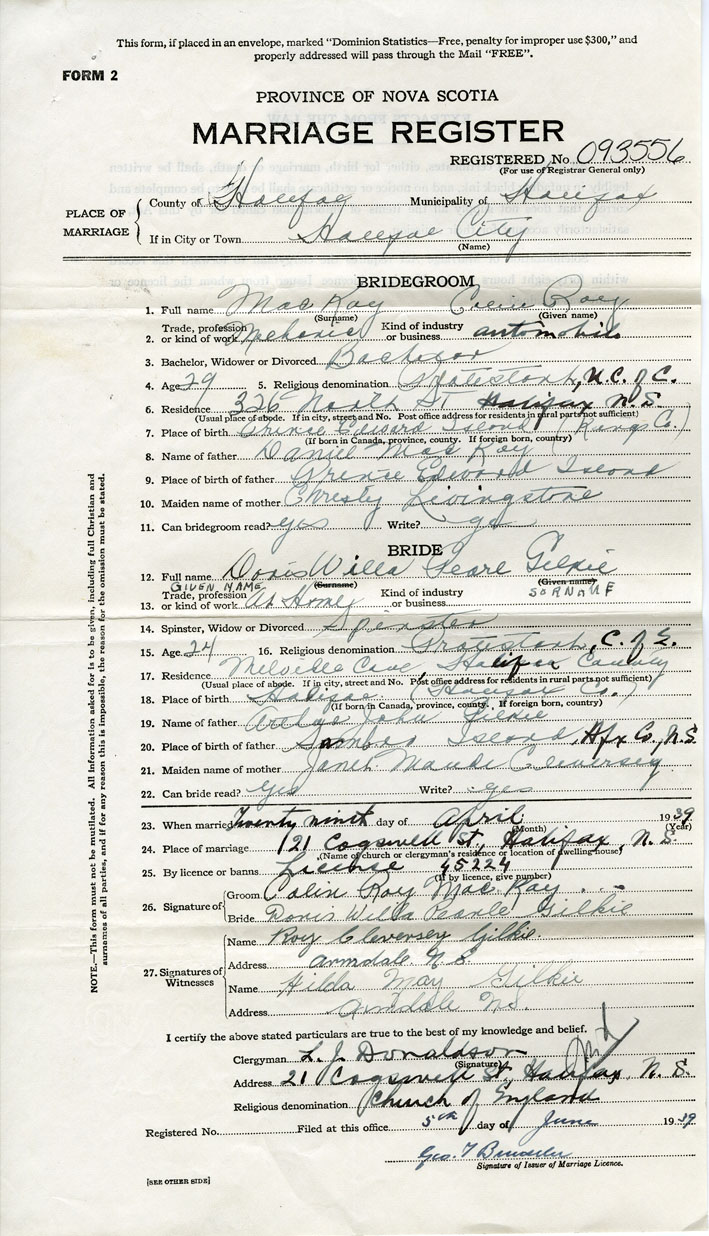 This form, if placed in an envelope, marked "Dominion Statistics—Free, penalty for improper use $300," and
properly addressed will pass through the Mail "FREE".
FORM 2
PROVINCE OF NOVA SCOTIA
MARRIAGE REGISTER
REGISTERED No 093556
(For use of Registrar General only)
PLACE OF MARRIAGE
County of Halifax Municipality of Halifax
If in City or Town Halifax City
(Name)
BRIDEGROOM
1. Full name MacKay Colin Roy
(Surname) (Given name)
2. Trade, profession or kind of work Mechanic Kind of industry or business automobile
3. Bachelor, Widower or Divorced Bachelor
4. Age 29 5. Religious denomination Protestant, U.C. of C.
6. Residence 326 North St Halifax N.S.
(Usual place of abode. If in city, street and No. Post office address for residents in rural parts not sufficient)
7. Place of birth Prince Edward Island (Kings Co.)
(If born in Canada, province, county. If foreign born, country)
8. Name of father Daniel MacKay
9. Place of birth of father Prince Edward Island
10. Maiden name of mother Livingstone
11. Can bridegroom read? yes Write? yes
BRIDE
12. Full name Doris Willa Pearl Gilkie
GIVEN NAME (Surname) (Given name) SURNAME
13. Trade, profession or kind of work At Home Kind of industry or business
14. Spinster, Widow or Divorced Spinster
15. Age 24 16. Religious denomination Protestant, C. of E.
17. Residence Melville Cove, Halifax County
(Usual place of abode. If in city, street and No. Post office address for residents in rural parts not sufficient)
18. Place of birth Halifax (Halifax Co.)
(If born in Canada, province, county. If foreign born, country)
19. Name of father John Gilkie
20. Place of birth of father Sambro Island, Hfx Co., N.S.
21. Maiden name of mother Janet Maude Cleversey
22. Can bride read? yes Write? yes
23. When married Twenty ninth day of April 1939
(Month) (Year)
24. Place of marriage 121 Cogswell St., Halifax, N.S.
(Name of church or clergyman's residence or location of dwelling house)
25. By licence or banns License 45224
(If by licence, give number)
26. Signature of
Groom Colin Roy MacKay
Bride Doris Willa Pearle Gilkie
27. Signatures of Witnesses
Name Roy Cleversey Gilkie.
Address Armdale N.S.
Name Hilda May Gilkie
Address Armdale N.S.
I certify the above stated particulars are true to the best of my knowledge and belief.
Clergyman L. J. Donaldson
(Signature)
Address 21 Cogswell St, Halifax, N.S.
Religious denomination Church of England
Registered No. Filed at this office 5th day of June 1939
Geo. T
Signature of Issuer of Marriage Licence.
[SEE OTHER SIDE]
NOTE.—This form must not be mutilated. All information asked for is to be given, including full Christian and
surnames of all parties, and if for any reason this is impossible, the reason for the omission must be stated.